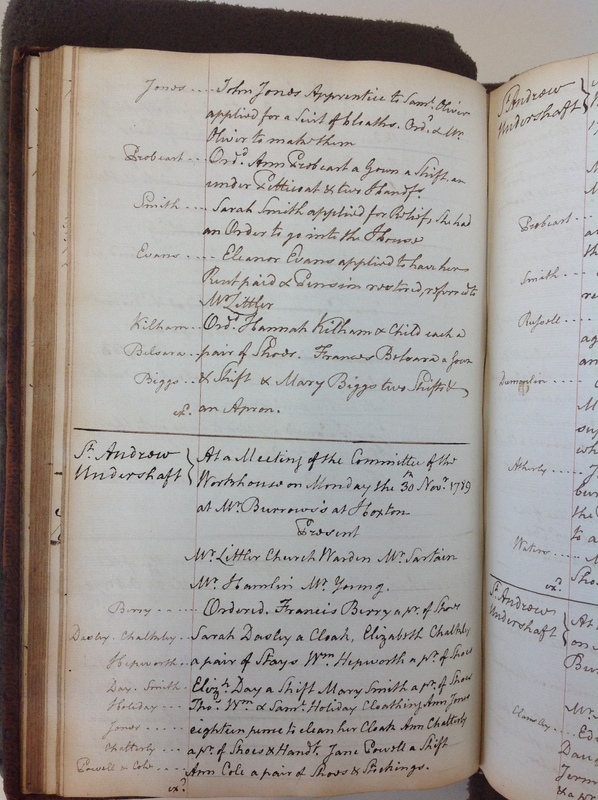 Jones .... John Jones Apprentice to Saml. Oliver
applied for a Suit of Cloaths. Ord.d & Mr.
Oliver to make them
Probeart .... Ord.d Ann Probeart a Gown a Shift an
under Petticoat & two Handfs.
Smith .... Sarah Smith applied for Relief, She had
an Order to go into the House
Evans .... Eleanor Evans applied to have her
Rent paid & Pension restored, referred to
Mr. Littler
Kilham .. Ord.d Hannah Kilham & Child each a
Belvara .. pair of Shoes. Frances Belvara a Gown
Biggs .... & Shift & Mary Biggs two Shifts &
ex.d an Apron.
St. Andrew
Undershaft
At a Meeting of the Committee of the
Workhouse on Monday the 30th Novr. 1789
at Mr. Burrows's at Hoxton
Present
Mr. Littler Church Warden Mr. Sartain
Mr. Hamlin Mr. Young.
Berry ...... Ordered. Francis Berry a pr. of Shoes
Daxley. Chalkley . Sarah Daxley a Cloak, Elizabeth Chalkley
Hepworth .. a pair of Stays Wm. Hepworth a pr. of Shoes
Day. Smith . Elizth. Day a Shift Mary Smith a pr. of Shoes
Holiday .... Thos. Wm. & Saml. Holiday Cloathing Ann Jones
Jones ...... eighteen pence to clean her Cloak Ann Chatterly
Chatterly .... a pr. of Shoes & Handf. Jane Powell a Shift
Powell & Cole ... Ann Cole a pair of Shoes & Stockings.
ex.d
St. Andrew
Undershaft
Probeart ...
Smith ....
Russell ....
Atherly ....
Waters ....
ex.d
St. Andrew
Undershaft
At